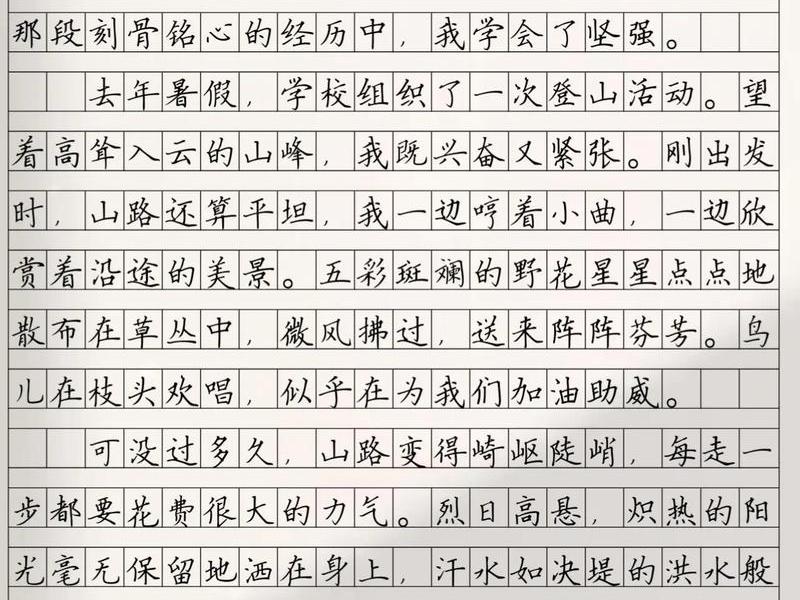 那段刻骨铭心的经历中，我学会了坚强。
去年暑假，学校组织了一次登山活动。望
着高耸入云的山峰，我既兴奋又紧张。刚出发
时，山路还算平坦，我一边哼着小曲，一边欣
赏着沿途的美景。五彩斑斓的野花星星点点地
散布在草丛中，微风拂过，送来阵阵芬芳。鸟
儿在枝头欢唱，似乎在为我们加油助威。
可没过多久，山路变得崎岖陡峭，每走一
步都要花费很大的力气。烈日高悬，炽热的阳
光毫无保留地洒在身上，汗水如决堤的洪水般